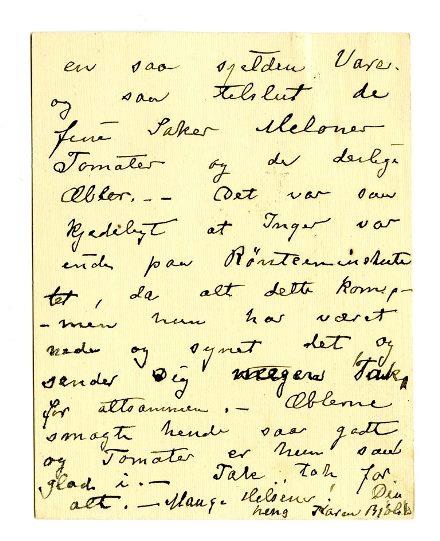 en saa sjelden Vare.
og saa tilslut de
fine Saker Meloner
Tomater og de deilige
Æbler. – – Det var saa
kjedeligt at Inger var
endu paa Röntgeninstitu
tet, da alt dette kom, –
– men hun har været
nede og synet det og
sender Dig megen Tak,
for altsammen. – Æblerne
smagte hende saa godt
og Tomater er hun saa
glad i. – Tak, tak for
alt. – Mange Hilsener, Din
heng Karen